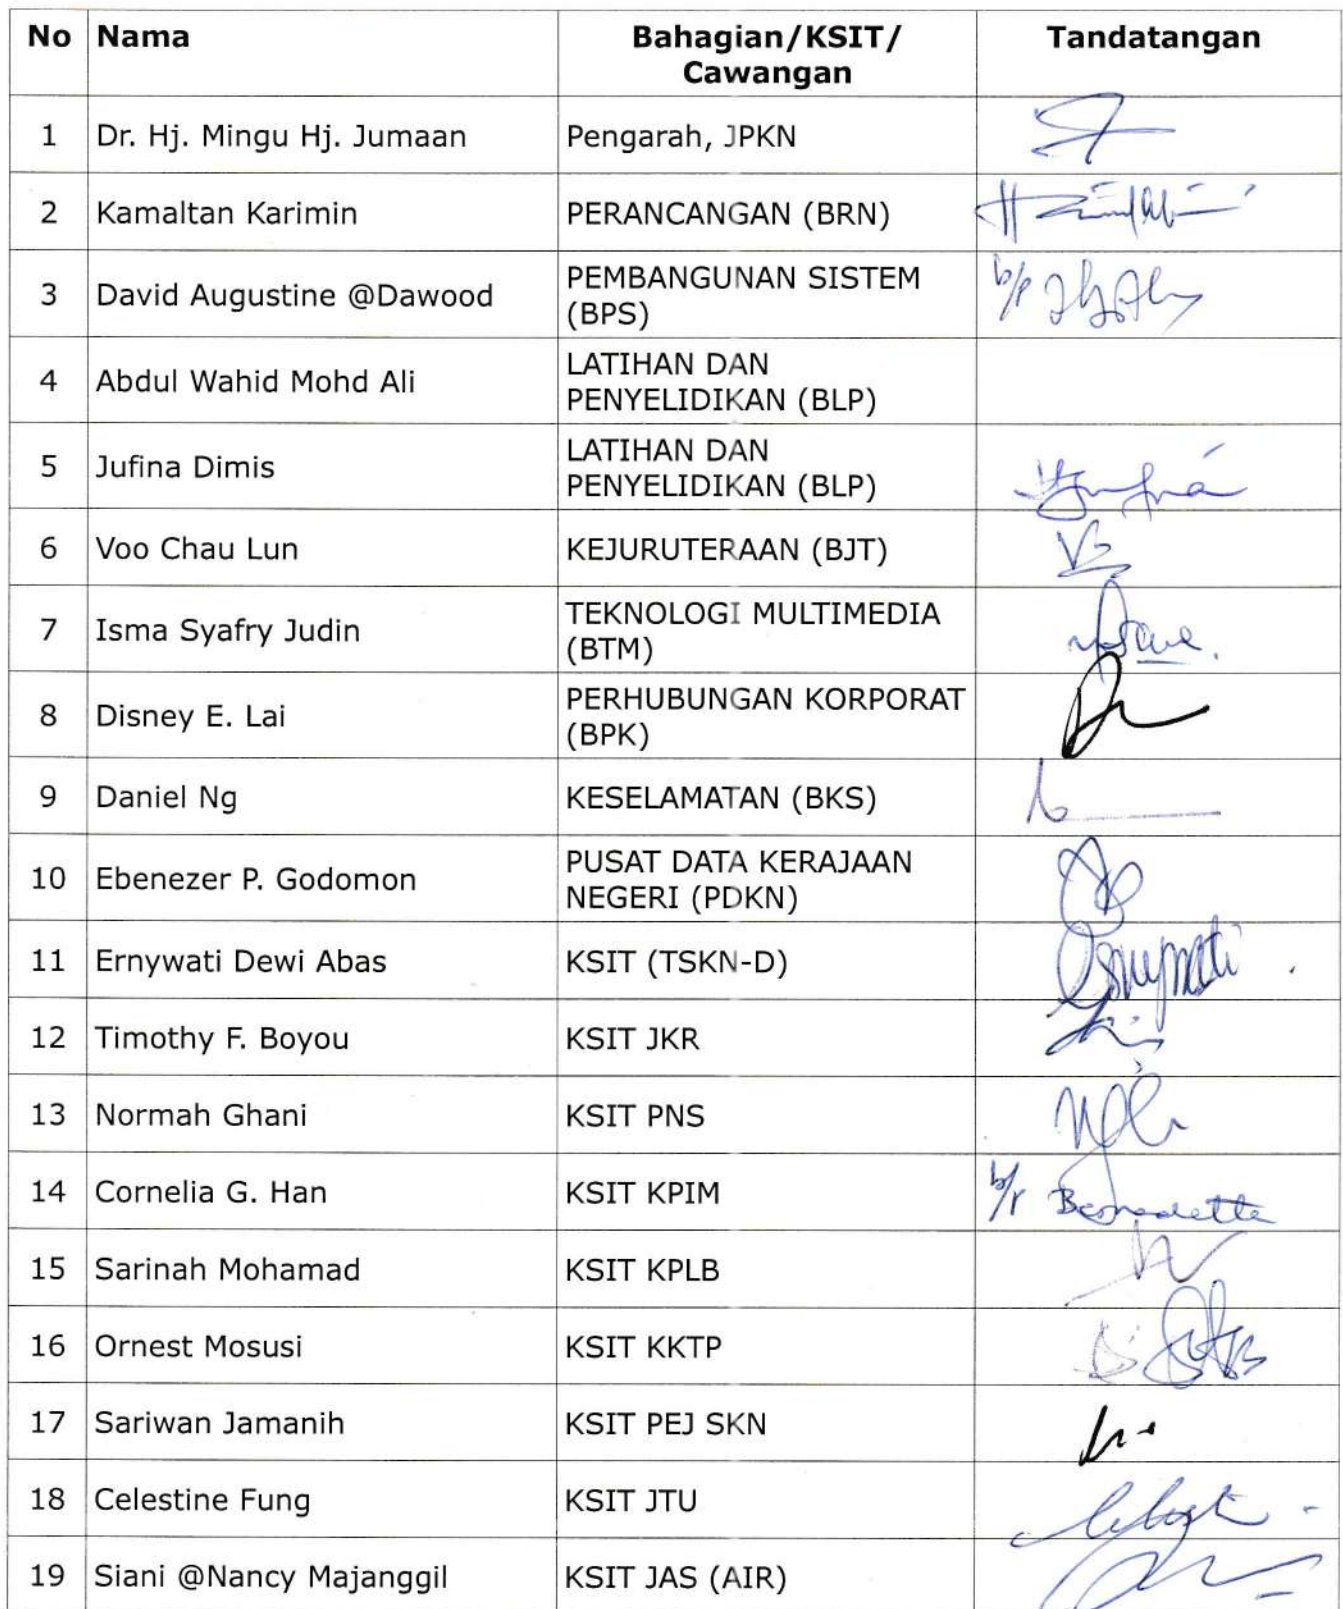 No Nama Bahagian/KSIT/ Tandatangan
Cawangan
1 Dr. Hj. Mingu Hj. Jumaan Pengarah, JPKN
2 Kamaltan Karimin PERANCANGAN (BRN)
3 David Augustine @Dawood PEMBANGUNAN SISTEM b/p
(BPS)
4 Abdul Wahid Mohd Ali LATIHAN DAN
PENYELIDIKAN (BLP)
5 Jufina Dimis LATIHAN DAN
PENYELIDIKAN (BLP)
6 Voo Chau Lun KEJURUTERAAN (BJT)
7 Isma Syafry Judin TEKNOLOGI MULTIMEDIA
(BTM)
8 Disney E. Lai PERHUBUNGAN KORPORAT
(BPK)
9 Daniel Ng KESELAMATAN (BKS)
10 Ebenezer P. Godomon PUSAT DATA KERAJAAN
NEGERI (PDKN)
11 Ernywati Dewi Abas KSIT (TSKN-D)
12 Timothy F. Boyou KSIT JKR
13 Normah Ghani KSIT PNS
14 Cornelia G. Han KSIT KPIM b/p Bernadette
15 Sarinah Mohamad KSIT KPLB
16 Ornest Mosusi KSIT KKTP
17 Sariwan Jamanih KSIT PEJ SKN
18 Celestine Fung KSIT JTU
19 Siani @Nancy Majanggil KSIT JAS (AIR)